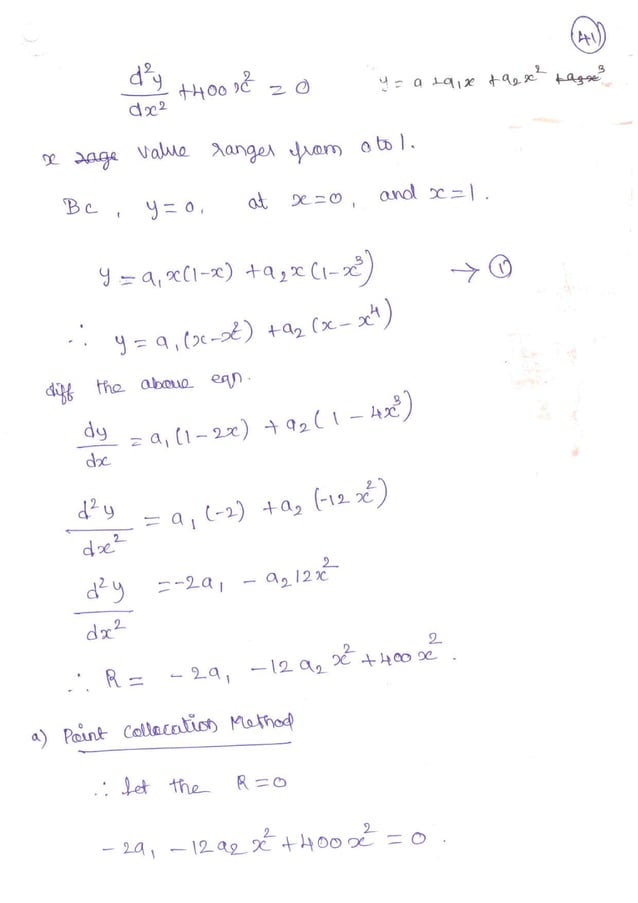 41
d²y/dx² + 400x² = 0 y = a + a₁x + a₂x² + a₃x³
x rage value ranges from 0 to 1.
Bc, y = 0, at x = 0, and x = 1.
y = a₁x(1-x) + a₂x(1-x³) → ①
∴ y = a₁(x-x²) + a₂(x-x⁴)
diff the above eqn.
dy/dx = a₁(1-2x) + a₂(1-4x³)
d²y/dx² = a₁(-2) + a₂(-12x²)
d²y/dx² = -2a₁ - a₂12x²
∴ R = -2a₁ - 12a₂x² + 400x².
a) Point Collocation Method
∴ let the R = 0
-2a₁ - 12a₂x² + 400x² = 0.